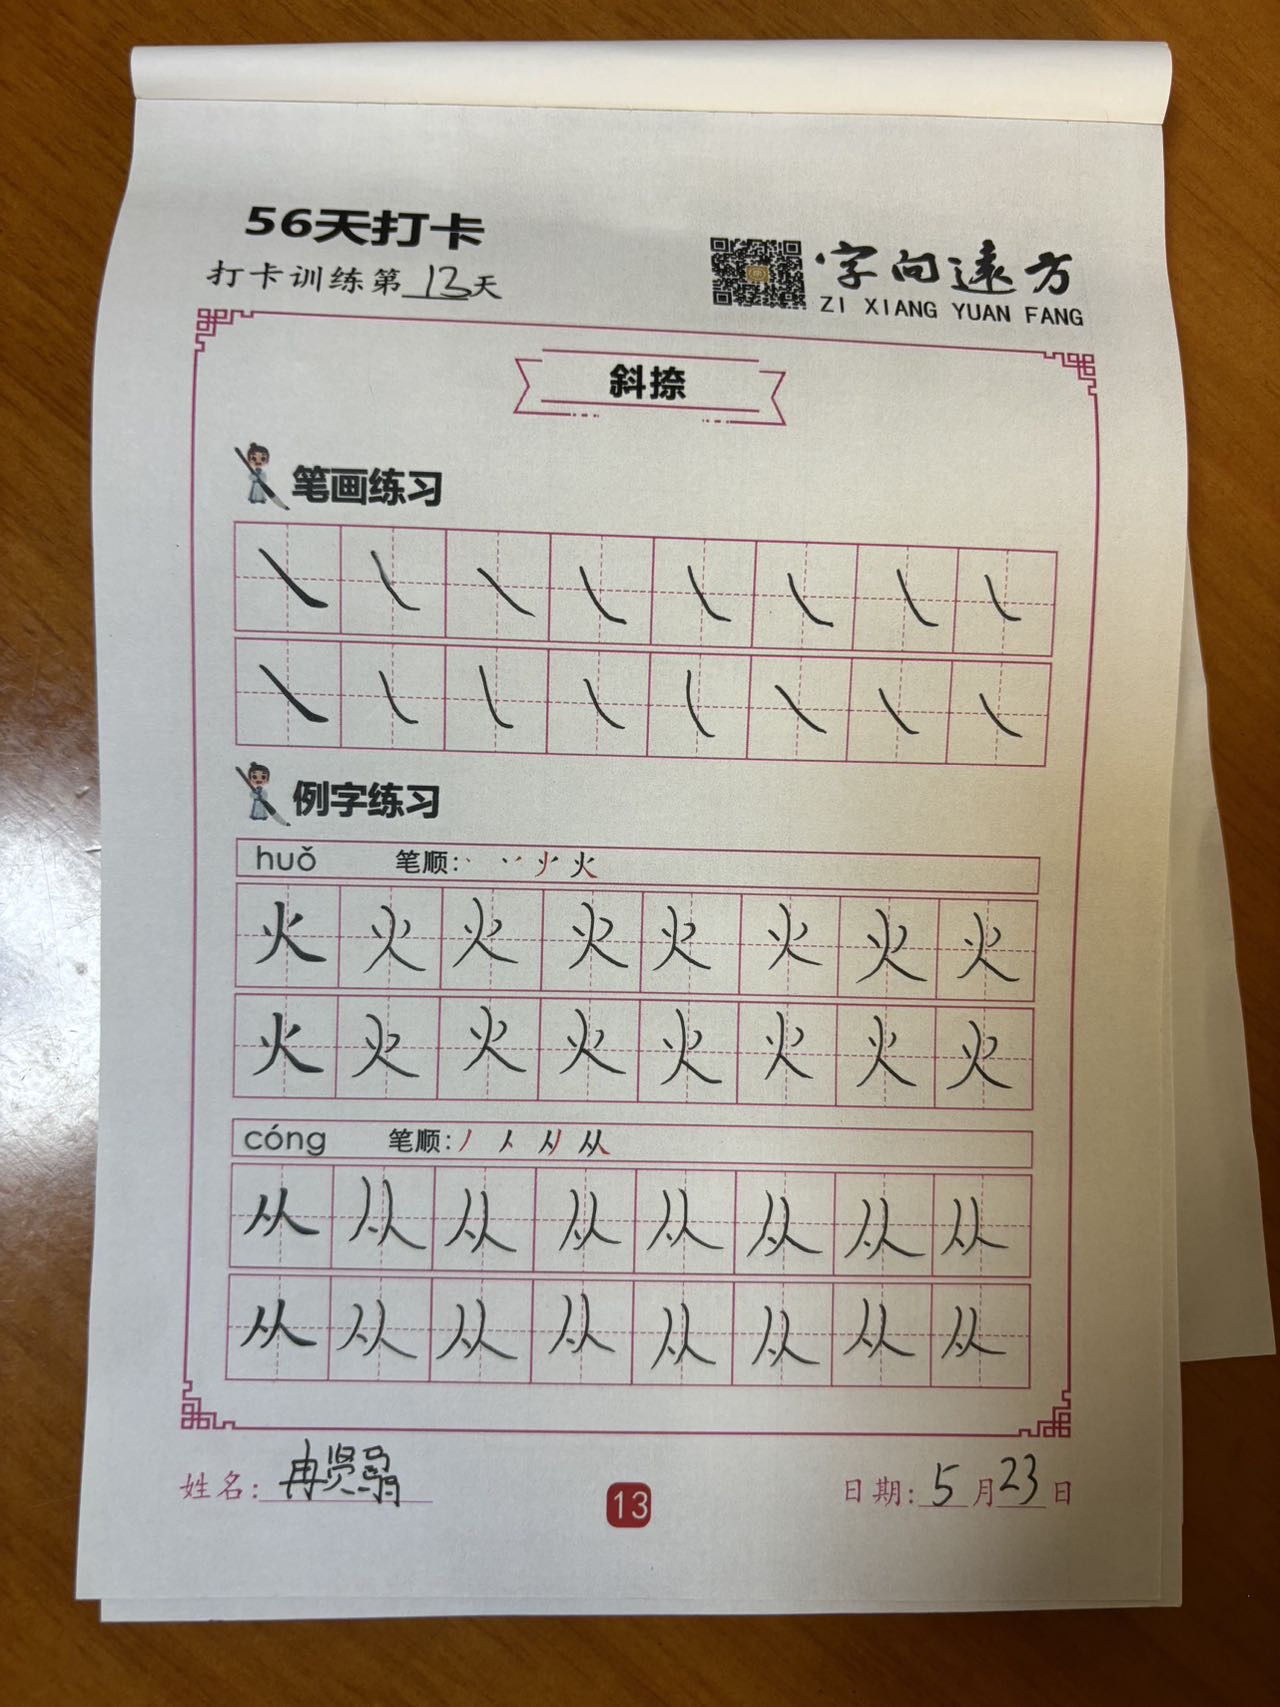 56天打卡
打卡训练第13天
字向远方
ZI XIANG YUAN FANG
斜捺
笔画练习
例字练习
huǒ 笔顺: 火
火 火 火 火 火 火 火 火
火 火 火 火 火 火 火 火
cóng 笔顺: 从
从 从 从 从 从 从 从 从
从 从 从 从 从 从 从 从
姓名: 冉贤
13
日期: 5月23日